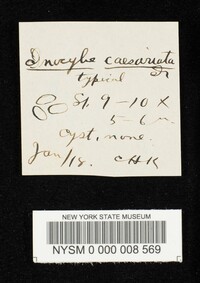 Inocybe caesariata
Fr
typical
St. 9-10 X
5-6 u.
Cyst. none.
Jan/18. CHK
NEW YORK STATE MUSEUM
NYSM 0 000 008 569